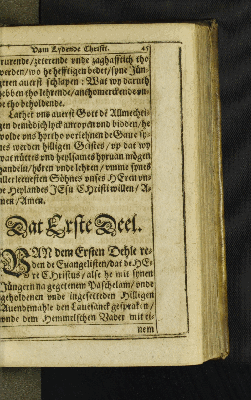 Vam Lydende Christi. 45
rurende/ zeterende vnde zaghafftich tho
werden/ wo he hefftigen bedet/ syne Jün-
geren auerst schlapen: Wat wy daruth
hebben tho lehrende/ anthomerckende vn-
de tho beholdende.
Lathet vns auerst Gott de Allmechti-
gen demödichlyck anropen vnd bidden/ he
wolde vns hyrtho vorlehnen de Gaue sy-
nes werden hilligen Geistes/ vp dat wy
wat nüttes vnd heylsames hyruan mögen
handeln/ hören vnde lehren/ vmme synes
aller leuesten Söhnes vnses HEren vn-
de Heylandes JEsu CHristi willen/ A-
men/ Amen.
Dat Erste Deel.
VAN dem Ersten Dehle re-
den de Euangelisten/ dat de HE-
re CHristus/ alse he mit synen
Jüngern na gegetenem Paschelam/ vnde
geholdenen vnde ingesetteden Hilligen
Auendemahle den Lauesanck gespraken/
vnde dem Hemmelschen Vader mit ei-
nem